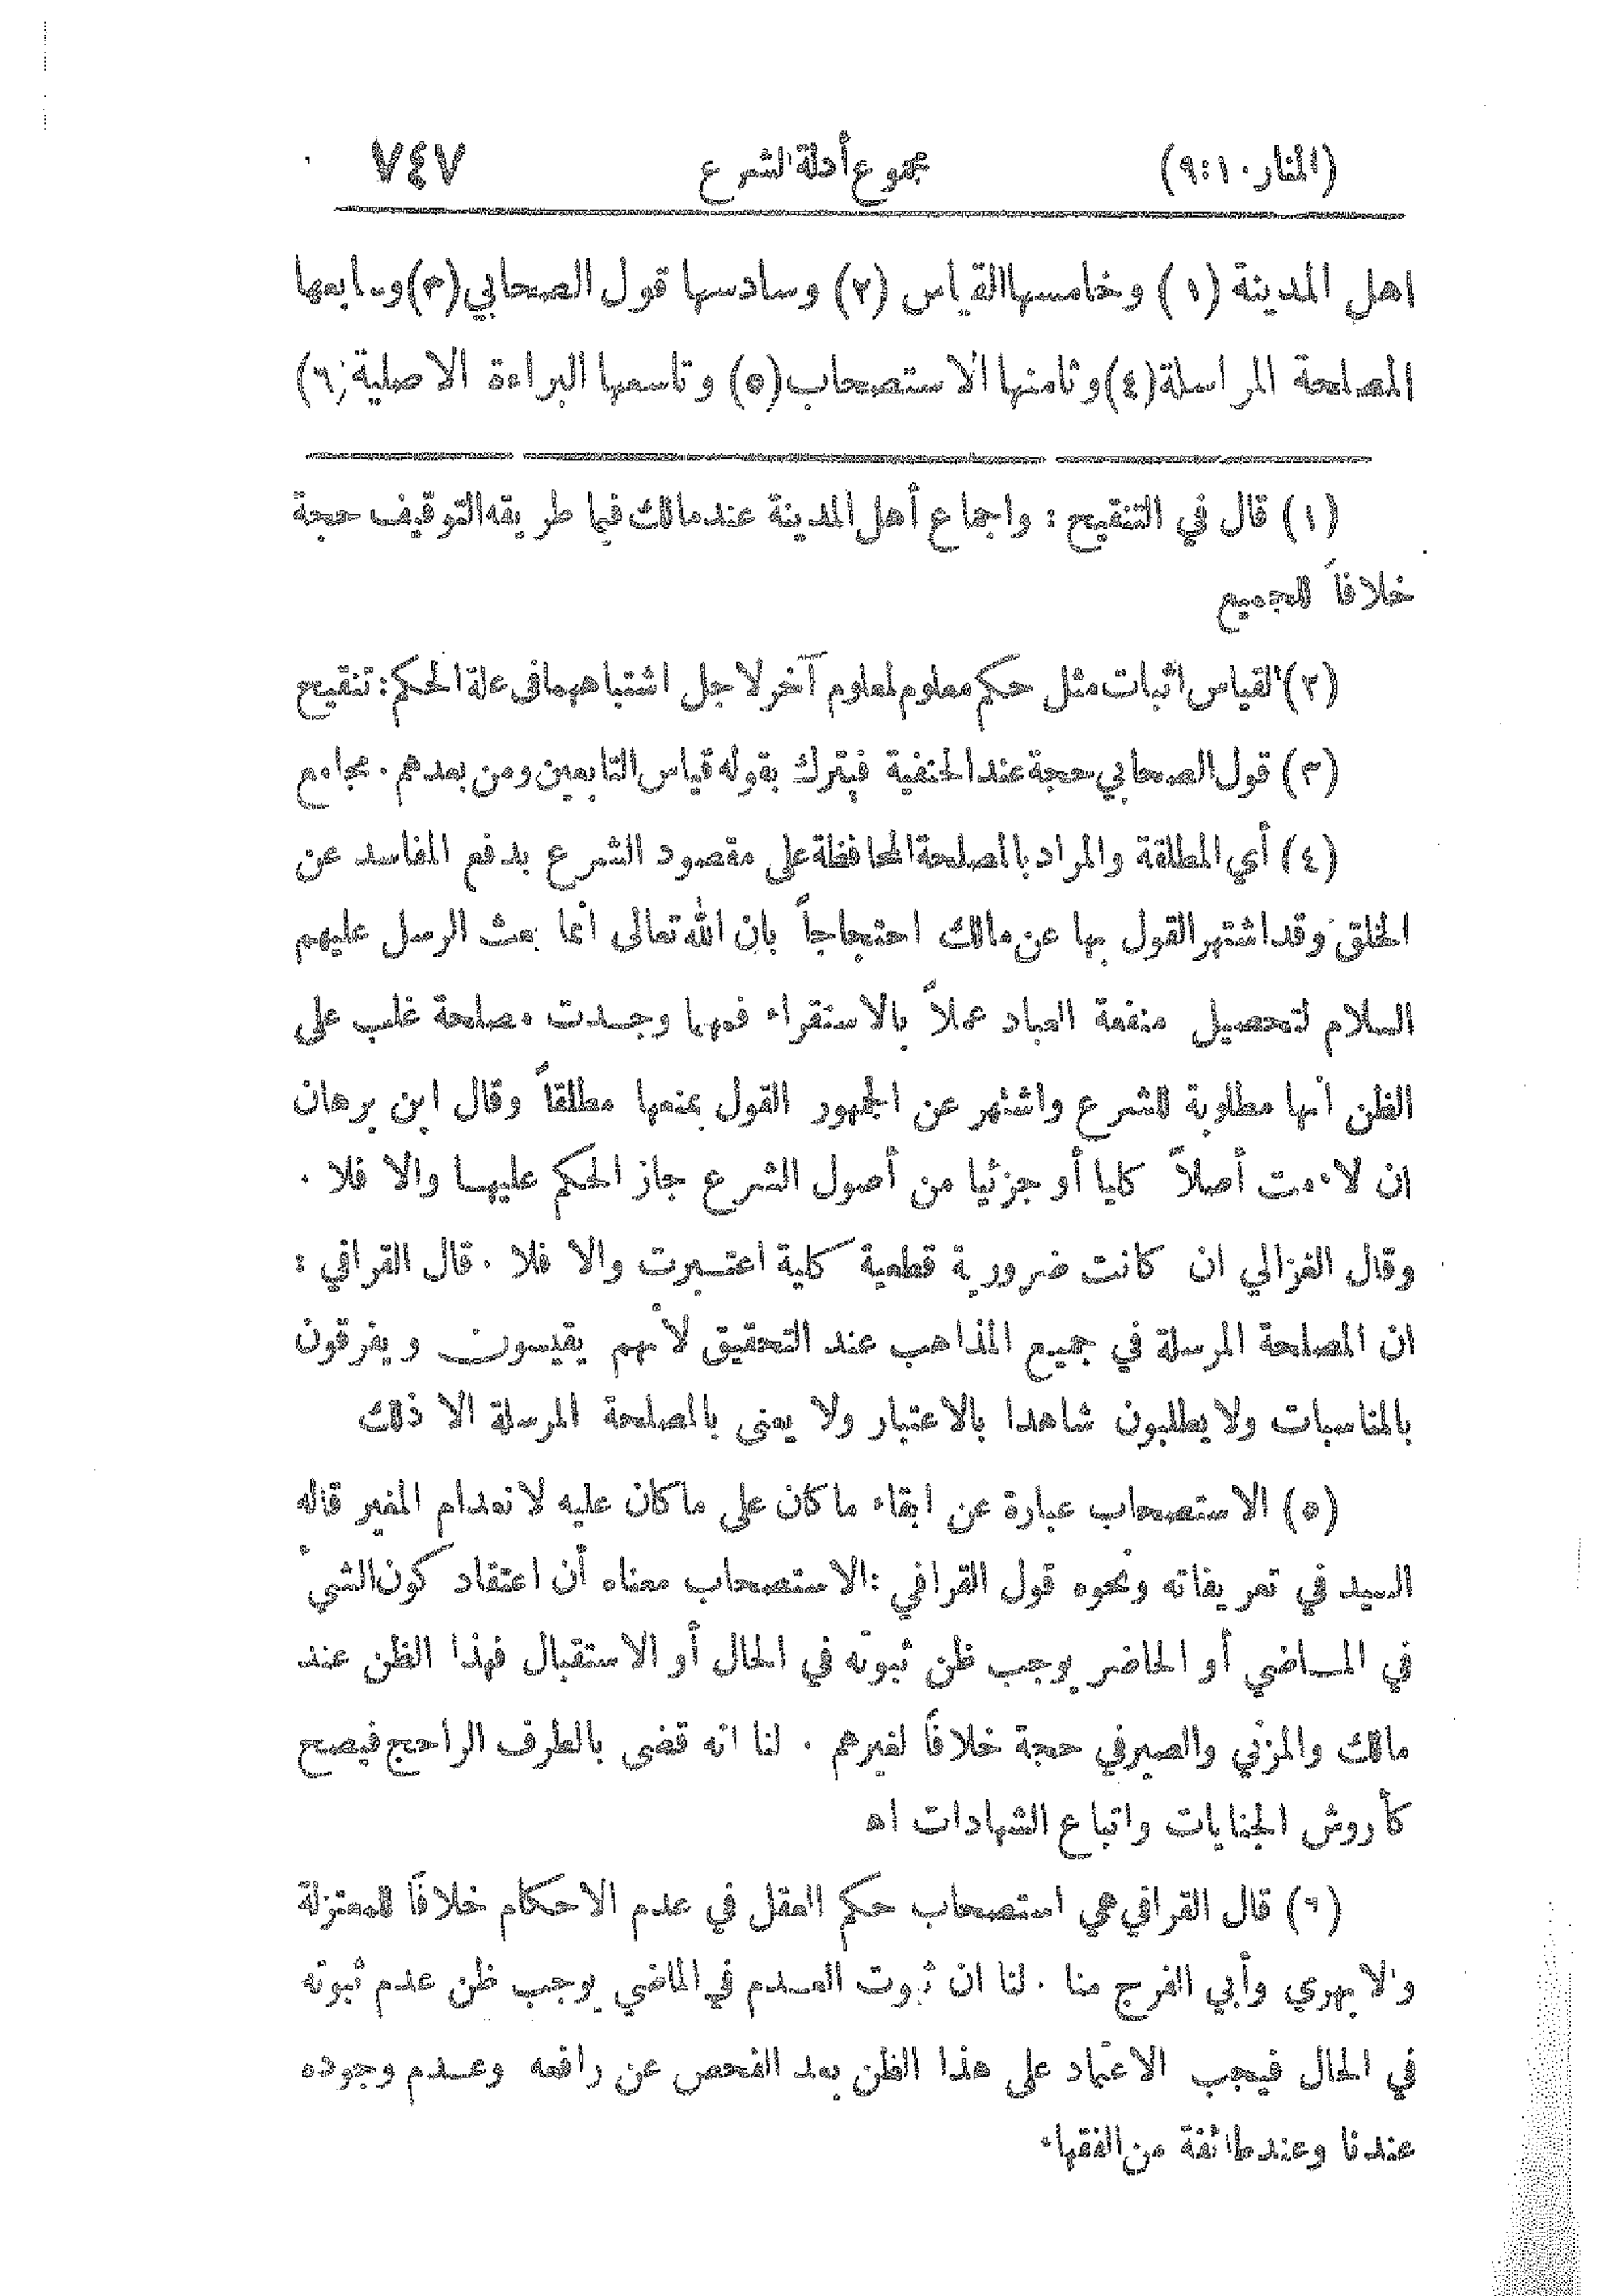 (المنار ١٠:٩) مجموع أدلة الشرع ٧٤٧
اهل المدينة (١) وخامسها القياس (٢) وسادسها قول الصحابي (٣) وسابعها
المصلحة المراسلة (٤) وثامنها الاستصحاب (٥) وتاسعها البراءة الاصلية (٦)
(١) قال في التنقيح : واجماع أهل المدينة عند مالك فيما طريقه التوقيف حجة
خلافاً للجميع
(٢) القياس اثبات مثل حكم معلوم لمعلوم آخر لاجل اشتباههما في علة الحكم : تنقيح
(٣) قول الصحابي حجة عند الحنفية فيترك بقوله قياس التابعين ومن بعدهم . مجامع
(٤) أي المطلقة والمراد بالمصلحة المحافظة على مقصود الشرع بدفع المفاسد عن
الخلق وقد اشتهر القول بها عن مالك احتجاجاً بان الله تعالى انما بعث الرسل عليهم
السلام لتحصيل منفعة العباد عملاً بالاستقراء فمهما وجدت مصلحة غلب على
الظن أنها مطلوبة للشرع واشتهر عن الجمهور القول بمنعها مطلقاً وقال ابن برهان
ان لاءمت أصلاً كليا أو جزئيا من أصول الشرع جاز الحكم عليها والا فلا .
وقال الغزالي ان كانت ضرورية قطعية كلية اعتبرت والا فلا . قال القرافي :
ان المصلحة المرسلة في جميع المذاهب عند التحقيق لأنهم يقيسون ويفرقون
بالمناسبات ولا يطلبون شاهدا بالاعتبار ولا يعنى بالمصلحة المرسلة الا ذلك
(٥) الاستصحاب عبارة عن ابقاء ما كان على ما كان عليه لانعدام المغير قاله
السيد في تعريفاته ونحوه قول القرافي : الاستصحاب معناه أن اعتقاد كون الشيء
في الماضي أو الحاضر يوجب ظن ثبوته في الحال أو الاستقبال فهذا الظن عند
مالك والمزني والصيرفي حجة خلافاً لغيرهم . لنا انه قضى بالطرف الراحج فيصح
كأروش الجنايات واتباع الشهادات اه
(٦) قال القرافي هي استصحاب حكم العقل في عدم الاحكام خلافاً للمعتزلة
والابهري وأبي الفرج منا . لنا ان ثبوت العدم في الماضي يوجب ظن عدم ثبوته
في الحال فيجب الاعتماد على هذا الظن بعد الفحص عن رافعه وعدم وجوده
عندنا وعند طائفة من الفقهاء